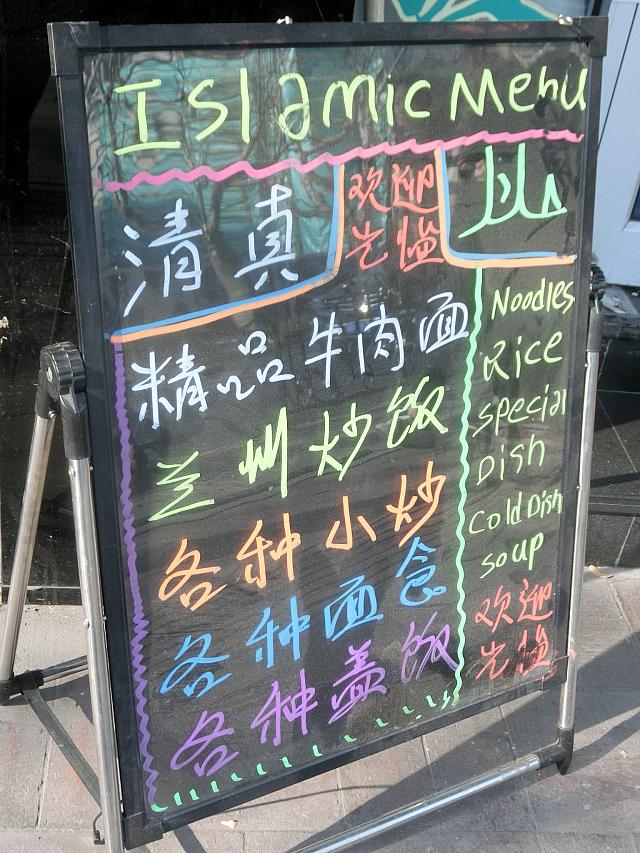 Islamic Menu
清真
欢迎
光临
精品牛肉面
兰州炒饭
各种小炒
各种面食
各种盖饭
Noodles
Rice
special
Dish
Cold Dish
soup
欢迎
光临